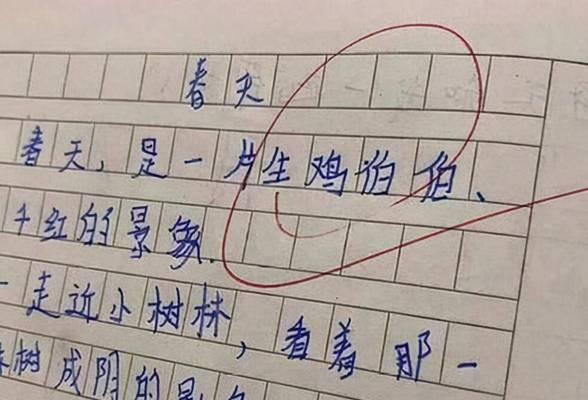 春天
春天,是一片生鸡伯伯、
千红的景象.
一走近小树林,看着那一
树成阴的景